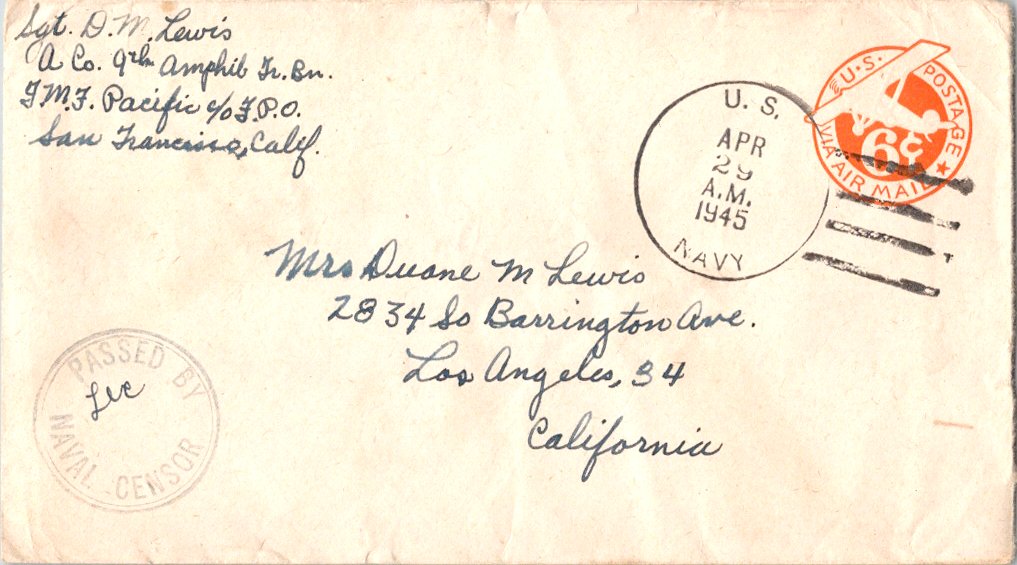 Sgt. D. M. Lewis
A Co. 9th Amphib Tr. Bn.
F.M.F. Pacific c/o F.P.O.
San Francisco, Calif.
U.S. POSTAGE
6¢
VIA AIR MAIL
U. S.
APR
29
A.M.
1945
NAVY
Mrs Duane M Lewis
2834 So Barrington Ave.
Los Angeles, 34
California
PASSED BY
NAVAL CENSOR